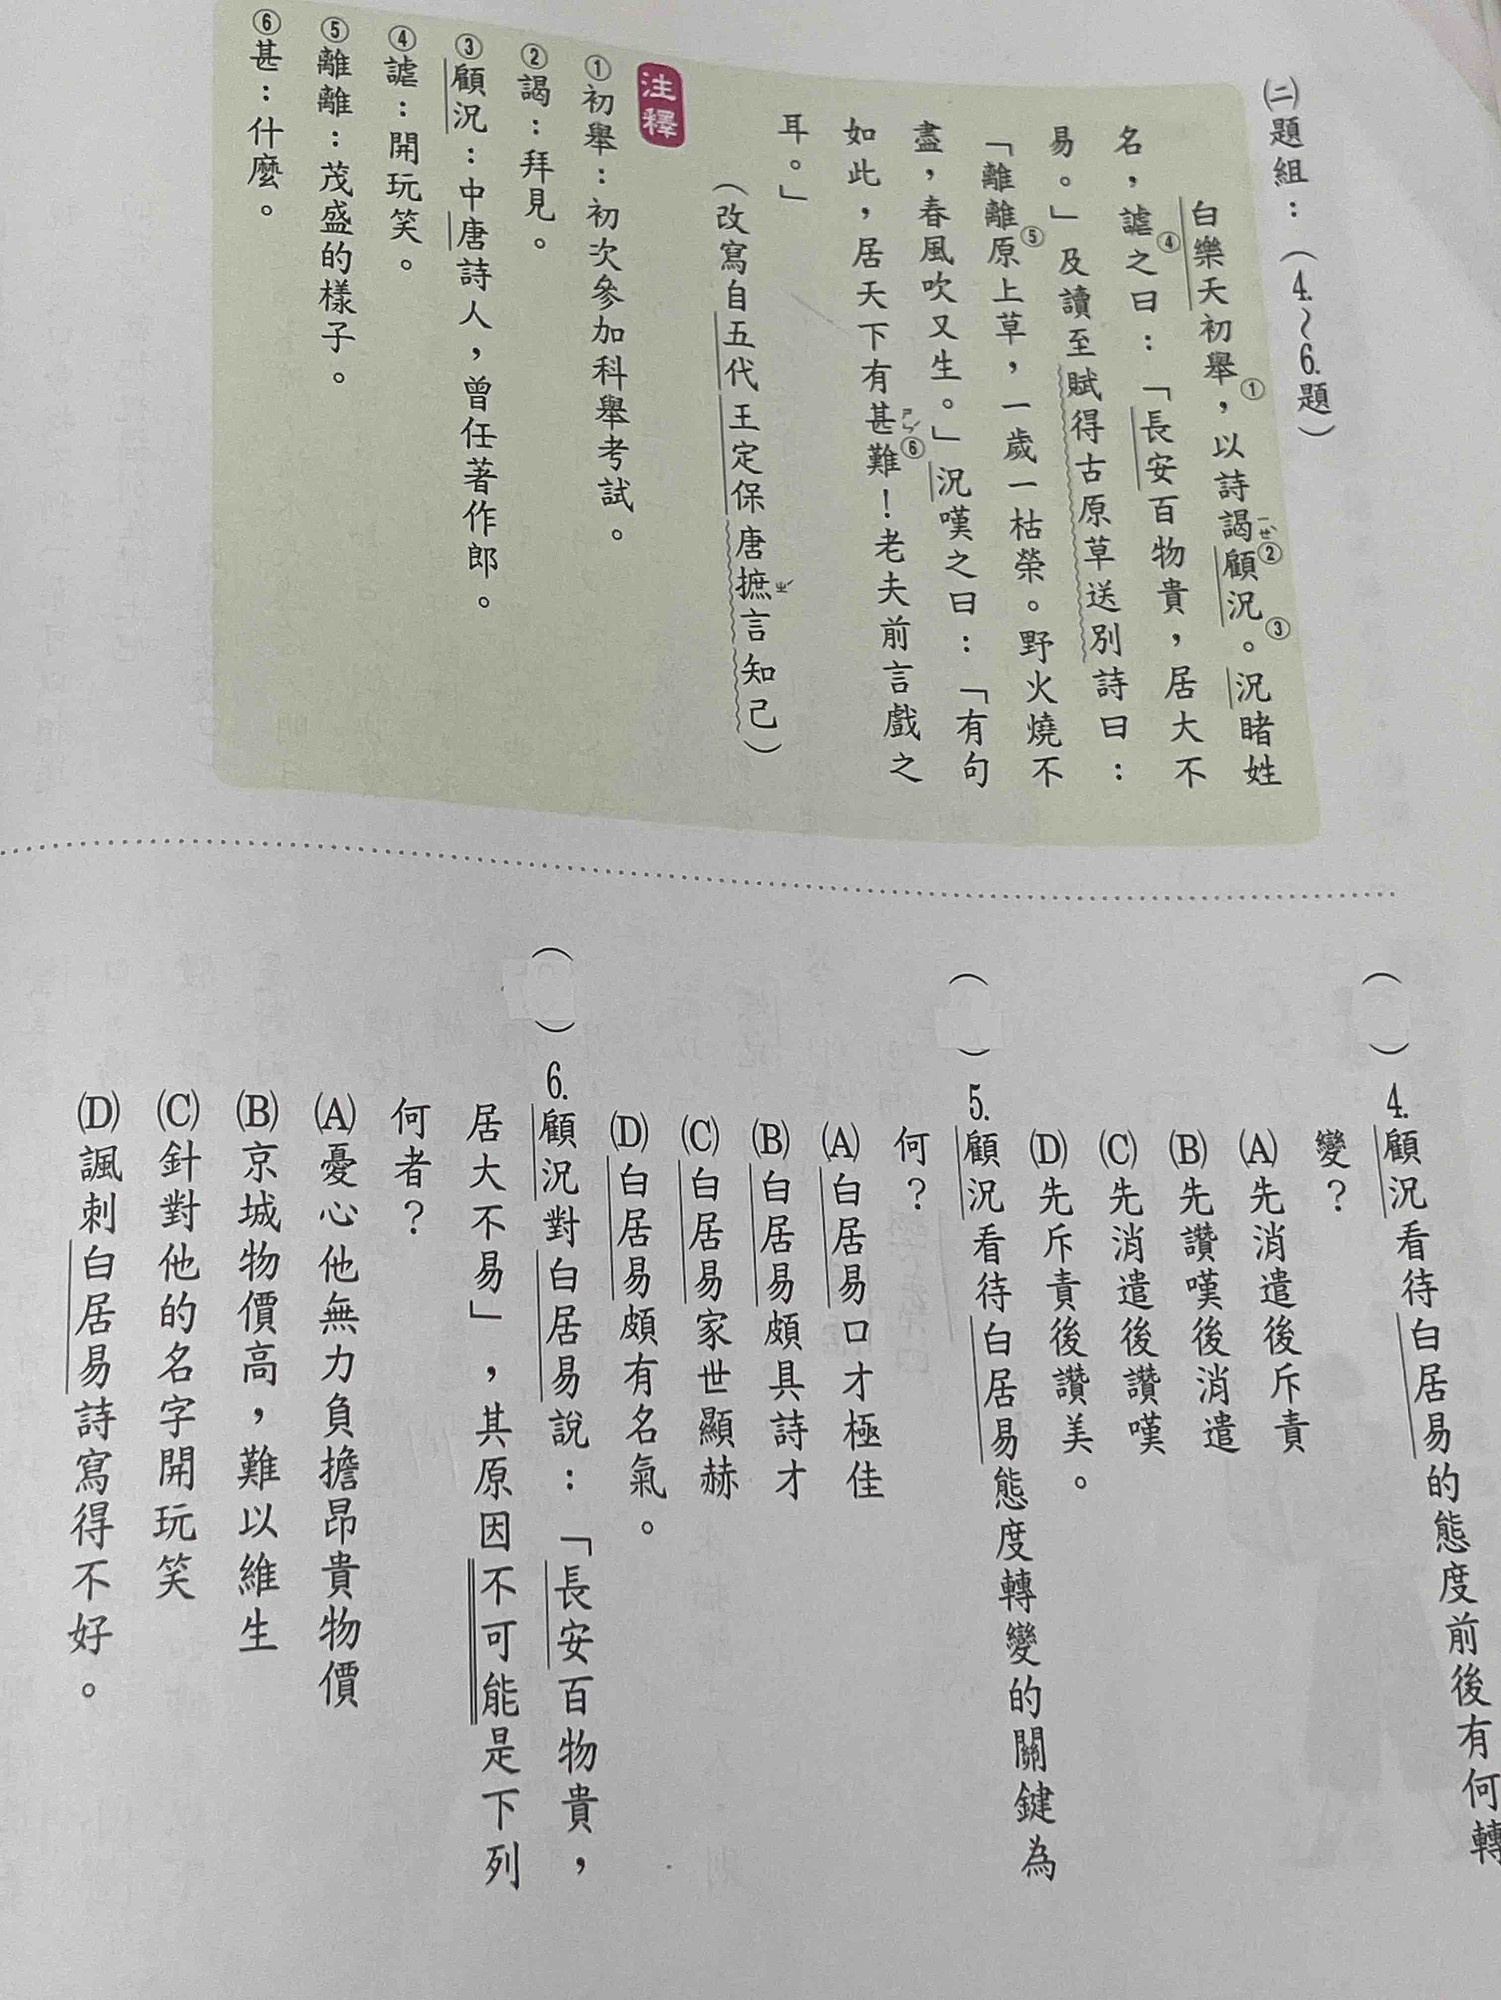 ㈡題組：（4.～6.題）
白樂天初舉①，以詩謁ㄧㄝˋ②顧況③。況睹姓
名，謔④之曰：「長安百物貴，居大不
易。」及讀至賦得古原草送別詩曰：
「離離⑤原上草，一歲一枯榮。野火燒不
盡，春風吹又生。」況嘆之曰：「有句
如此，居天下有甚ㄕㄣˊ⑥難！老夫前言戲之
耳。」
（改寫自五代王定保唐摭ㄓˊ言知己）
注釋
①初舉：初次參加科舉考試。
②謁：拜見。
③顧況：中唐詩人，曾任著作郎。
④謔：開玩笑。
⑤離離：茂盛的樣子。
⑥甚：什麼。
（　）4.顧況看待白居易的態度前後有何轉
變？
(A)先消遣後斥責
(B)先讚嘆後消遣
(C)先消遣後讚嘆
(D)先斥責後讚美。
（　）5.顧況看待白居易態度轉變的關鍵為
何？
(A)白居易口才極佳
(B)白居易頗具詩才
(C)白居易家世顯赫
(D)白居易頗有名氣。
（　）6.顧況對白居易說：「長安百物貴，
居大不易」，其原因不可能是下列
何者？
(A)憂心他無力負擔昂貴物價
(B)京城物價高，難以維生
(C)針對他的名字開玩笑
(D)諷刺白居易詩寫得不好。